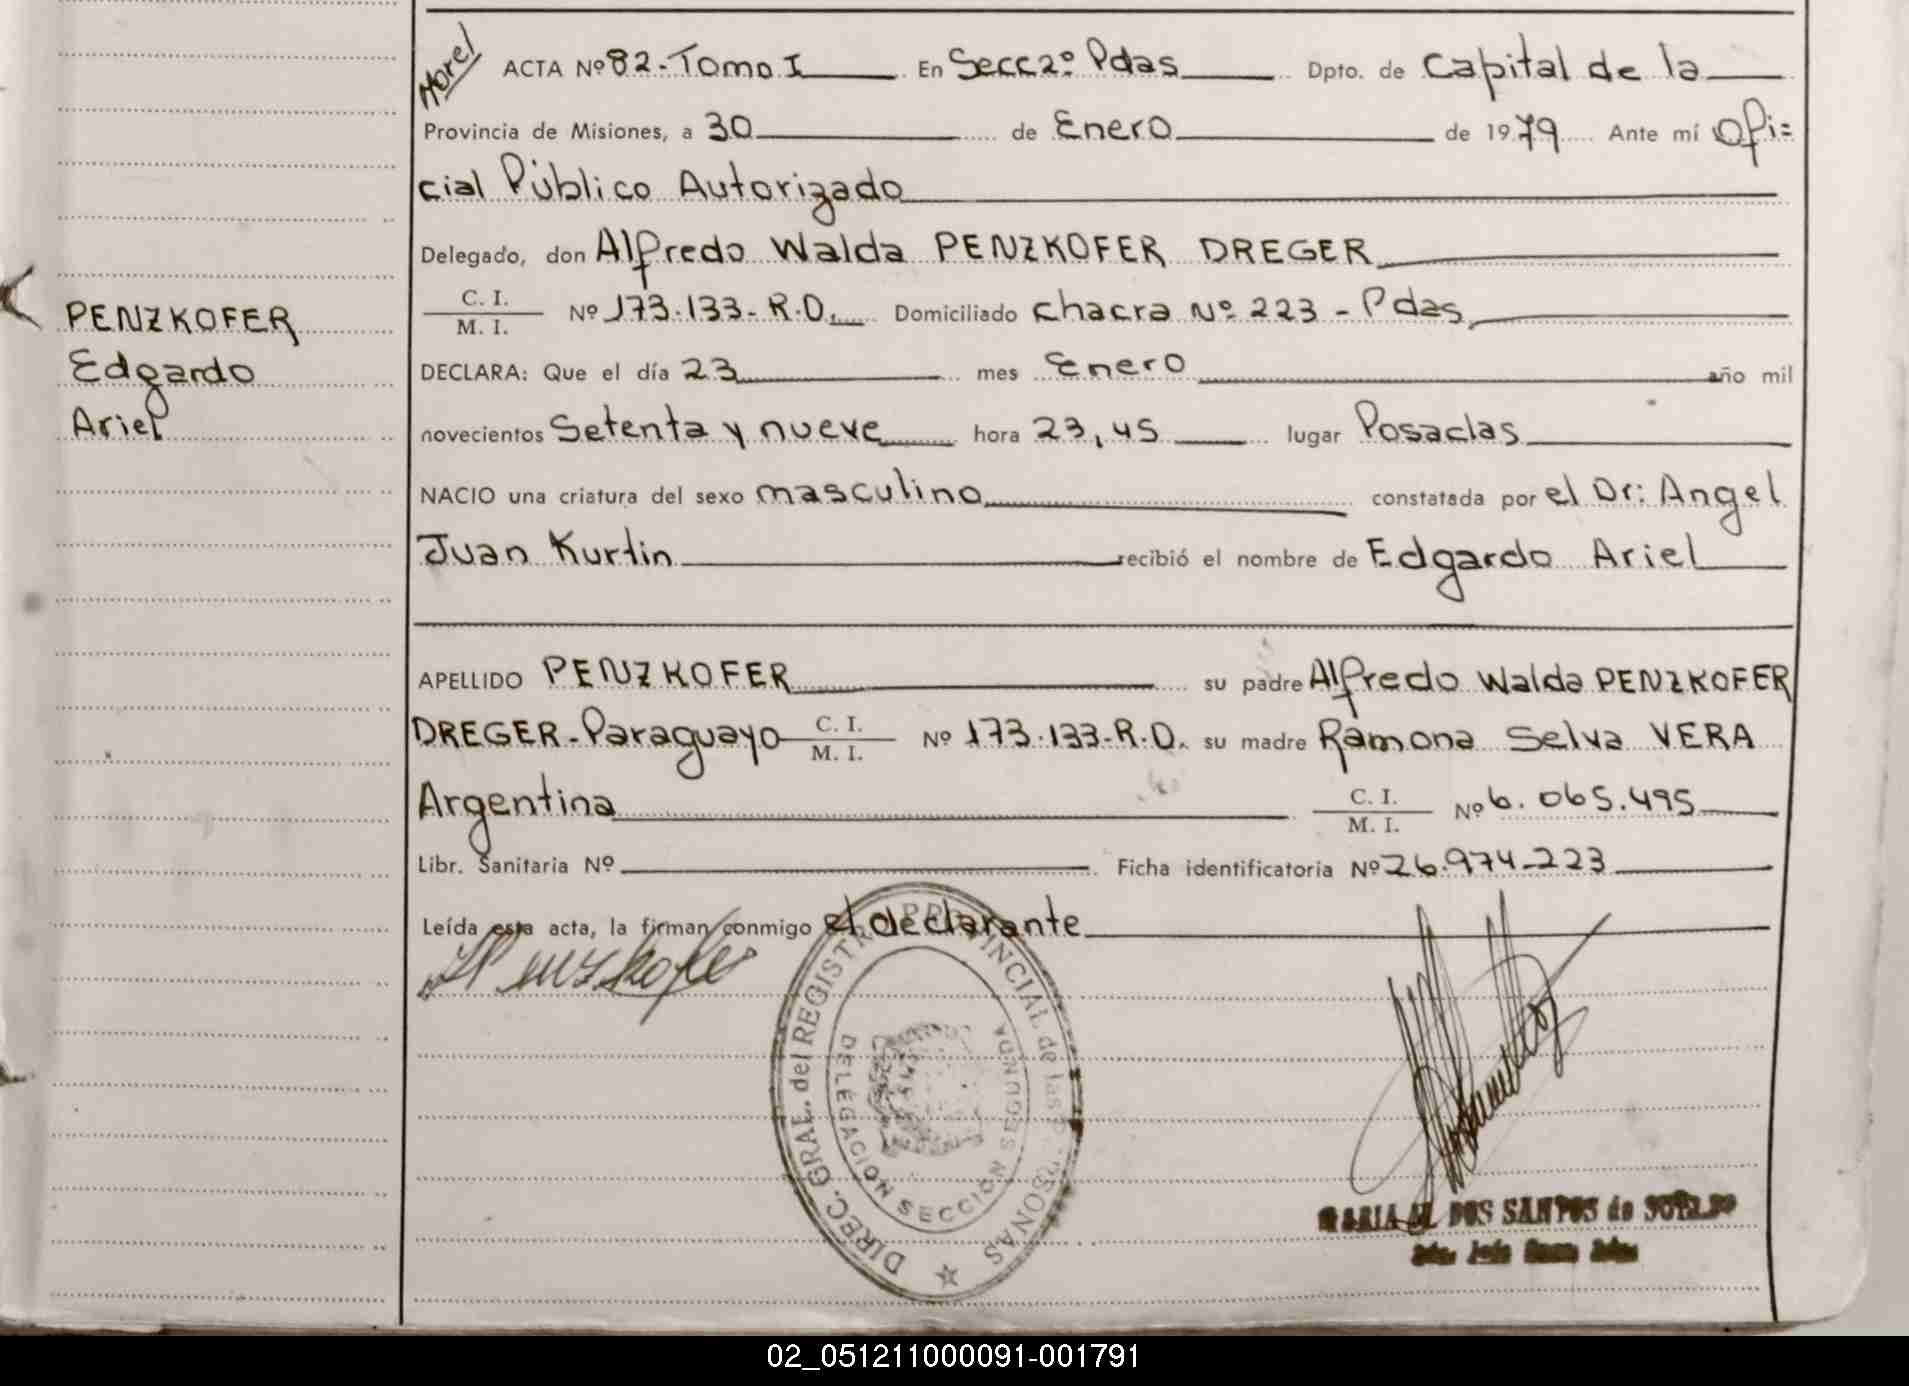 Morel
ACTA Nº 82-Tomo I En Secc 2º Pdas Dpto. de Capital de la
Provincia de Misiones, a 30 de Enero de 1979 Ante mí Ofi=
cial Público Autorizado
Delegado, don Alfredo Walda PENZKOFER DREGER
C. I.
M. I. Nº 173.133-R.D. Domiciliado chacra Nº 223 - Pdas,
PENZKOFER
Edgardo
Ariel
DECLARA: Que el día 23 mes Enero año mil
novecientos Setenta y nueve hora 23,45 lugar Posadas
NACIO una criatura del sexo masculino constatada por el Dr: Angel
Juan Kurtin recibió el nombre de Edgardo Ariel
APELLIDO PENZKOFER su padre Alfredo Walda PENZKOFER
DREGER-Paraguayo C. I. M. I. Nº 173.133-R.D. su madre Ramona Selva VERA
Argentina C. I. M. I. Nº 6.065.495
Libr. Sanitaria Nº Ficha identificatoria Nº 26.974-223
Leída esta acta, la firman conmigo el declarante
Penzkofer
DIREC. GRAL. del REGISTRO PROVINCIAL de las PERSONAS
DELEGACION SECCION SEGUNDA
MARIA DOS SANTOS de
02_051211000091-001791